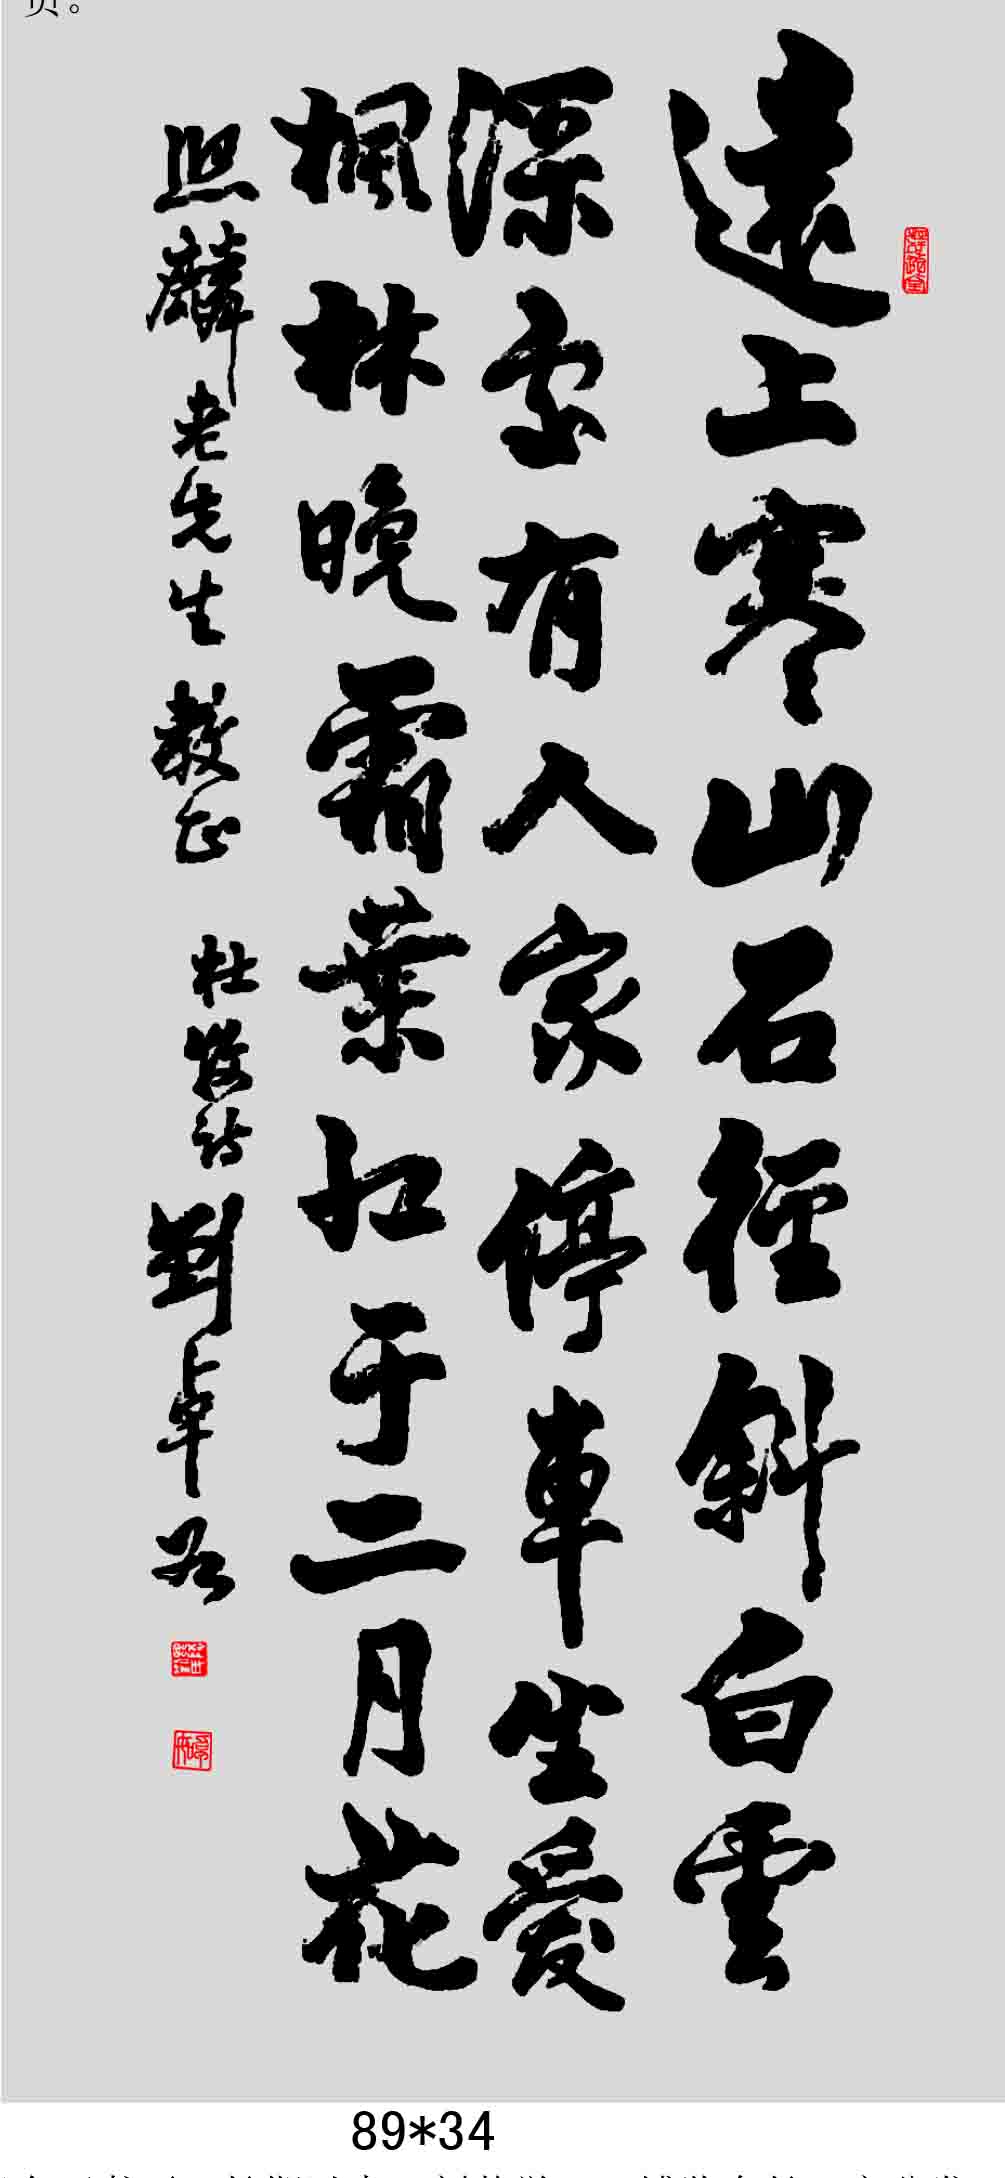 遠上寒山石徑斜白雲
深處有人家停車坐愛
楓林晚霜葉红于二月花
照麟老先生教正 杜牧詩 劉卓
89*34